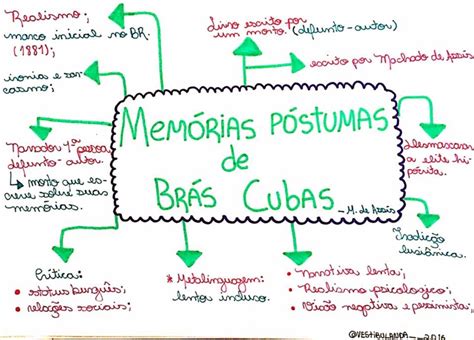 Realismo;
marco inicial no BR.
(1881);
ironia e sar-
casmo;
Livro escrito por
um morto. (defunto-autor)
escrito por Machado de Assis
MEMÓRIAS PÓSTUMAS
de
BRÁS CUBAS
- M. de Assis
Narrador 1ª pessoa,
defunto-autor.
morto que es-
creve sobre suas
memórias.
Desmascara
a elite hi-
pócrita.
Tradição
lusiânica.
Crítica:
• status burguês;
• relações sociais;
* Metalinguagem:
leitor incluso.
• Narrativa lenta;
• Realismo psicológico;
• Visão negativa e pessimista;
@VESTIBULANDA__2016